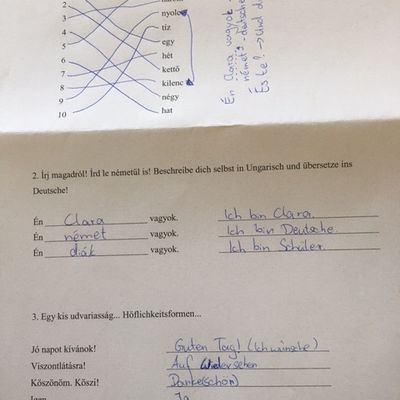 2
3 nyolc
4 tíz
5 egy
6 hét
7 kettő
8 kilenc
9 négy
10 hat
Én Clara, vagyok
német - deutsche
És te? → Und d
2. Írj magadról! Írd le németül is! Beschreibe dich selbst in Ungarisch und übersetze ins
Deutsche!
Én Clara vagyok. Ich bin Clara.
Én német vagyok. Ich bin Deutsche.
Én diák vagyok. Ich bin Schüler.
3. Egy kis udvariasság... Höflichkeitsformen...
Jó napot kívánok! Guten Tag! (Ich wünsche)
Viszontlátásra! Auf Wiedersehen
Köszönöm. Köszi! Danke(schön)
Igen Ja